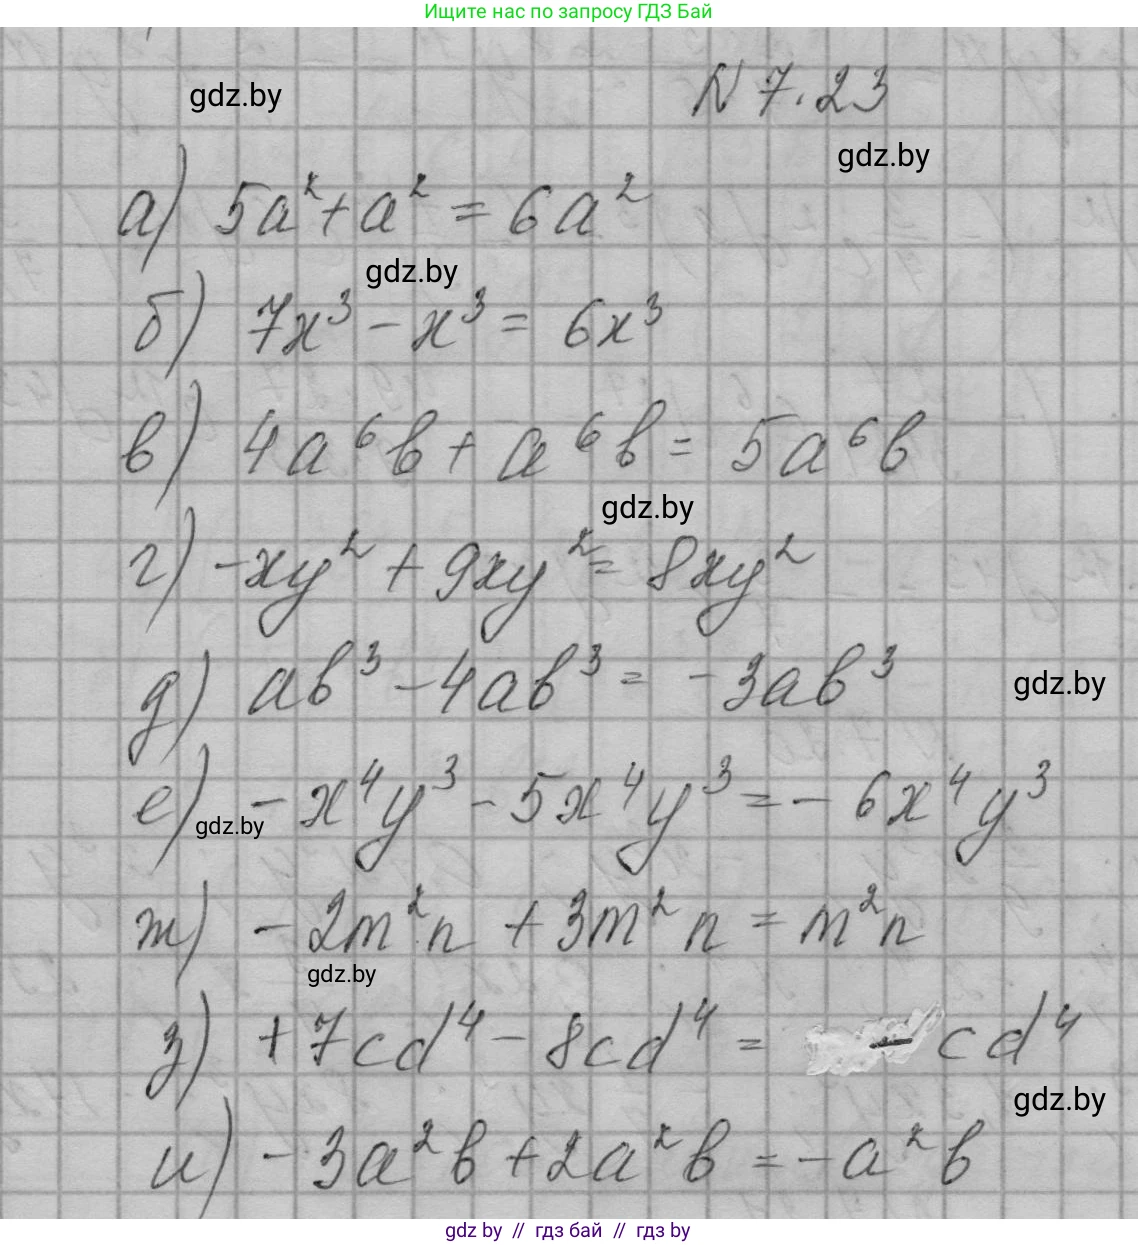 Ищите нас по запросу ГДЗ Бай
gdz.by
N 7.23
gdz.by
а) 5a² + a² = 6a²
gdz.by
б) 7x³ - x³ = 6x³
в) 4a⁶b + a⁶b = 5a⁶b
gdz.by
г) -xy² + 9xy² = 8xy²
д) ab³ - 4ab³ = -3ab³
gdz.by
е) -x⁴y³ - 5x⁴y³ = -6x⁴y³
gdz.by
ж) -2m²n + 3m²n = m²n
gdz.by
з) +7cd⁴ - 8cd⁴ = -cd⁴
gdz.by
и) -3a²b + 2a²b = -a²b
gdz by // гдз бай // гдз by